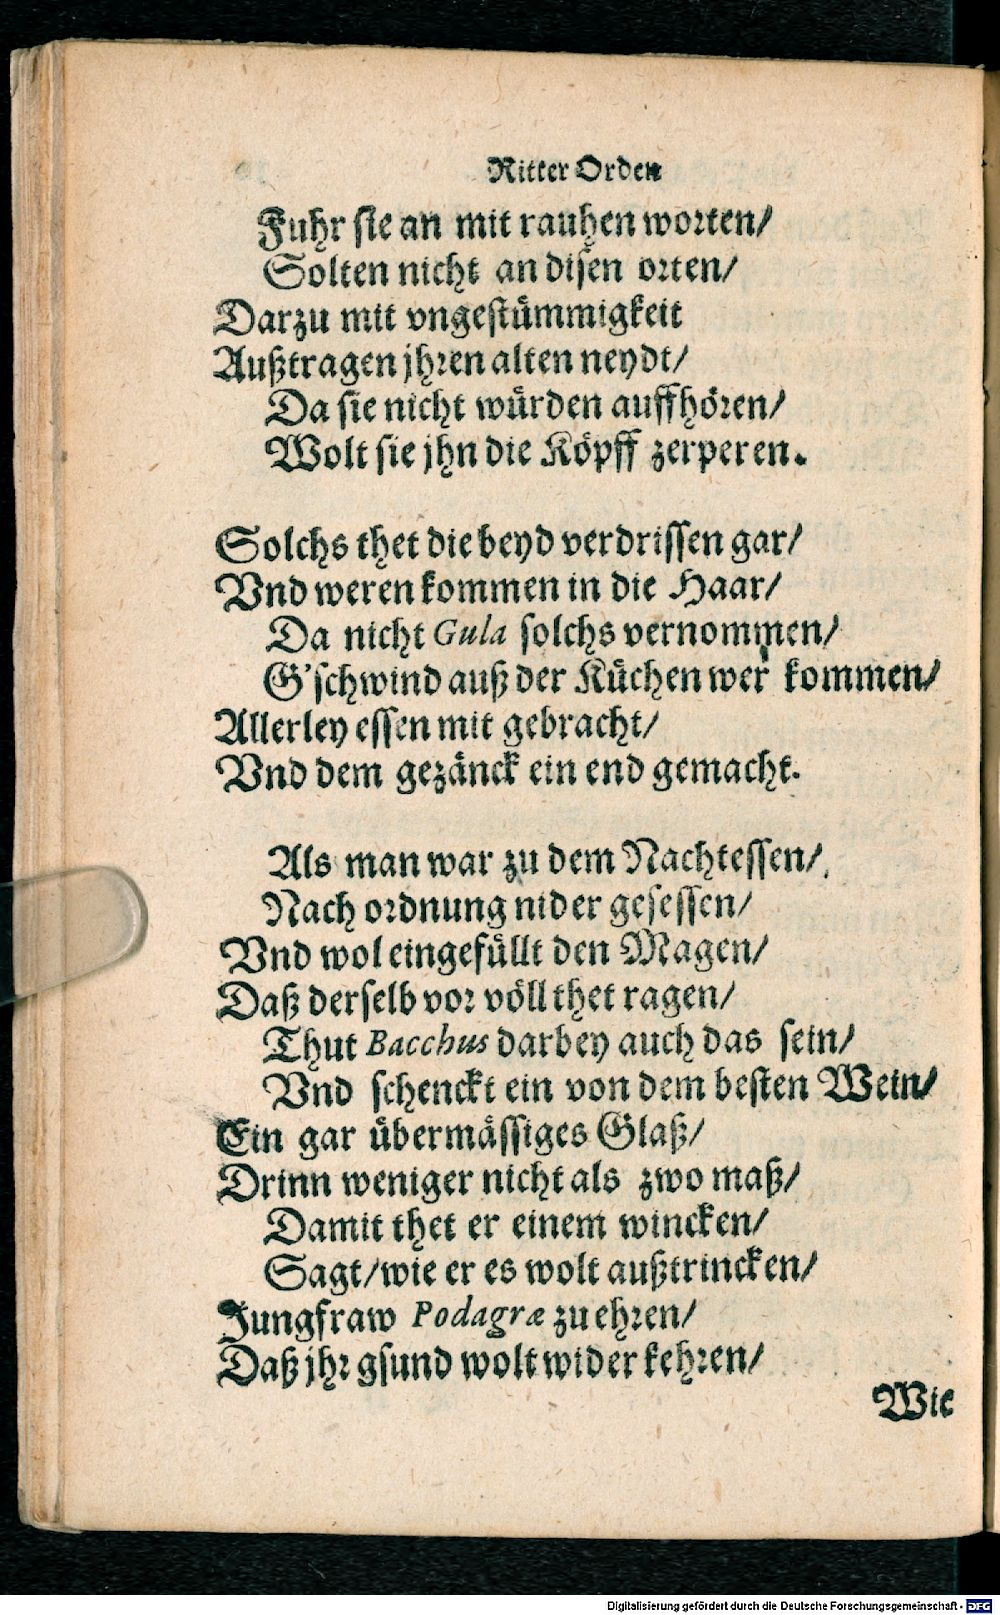 Ritter Orden
Fuhr sie an mit rauhen worten/
Solten nicht an disen orten/
Darzu mit vngestümmigkeit
Außtragen jhren alten neydt/
Da sie nicht würden auffhören/
Wolt sie jhn die Köpff zerperen.
Solchs thet die beyd verdrissen gar/
Vnd weren kommen in die Haar/
Da nicht Gula solchs vernommen/
G'schwind auß der Küchen wer kommen/
Allerley essen mit gebracht/
Vnd dem gezänck ein end gemacht.
Als man war zu dem Nachtessen/
Nach ordnung nider gesessen/
Vnd wol eingefüllt den Magen/
Daß derselb vor völl thet ragen/
Thut Bacchus darbey auch das sein/
Vnd schenckt ein von dem besten Wein/
Ein gar übermässiges Glaß/
Drinn weniger nicht als zwo maß/
Damit thet er einem wincken/
Sagt/wie er es wolt außtrincken/
Jungfraw Podagræ zu ehren/
Daß jhr gsund wolt wider kehren/
Wie
Digitalisierung gefördert durch die Deutsche Forschungsgemeinschaft - DFG